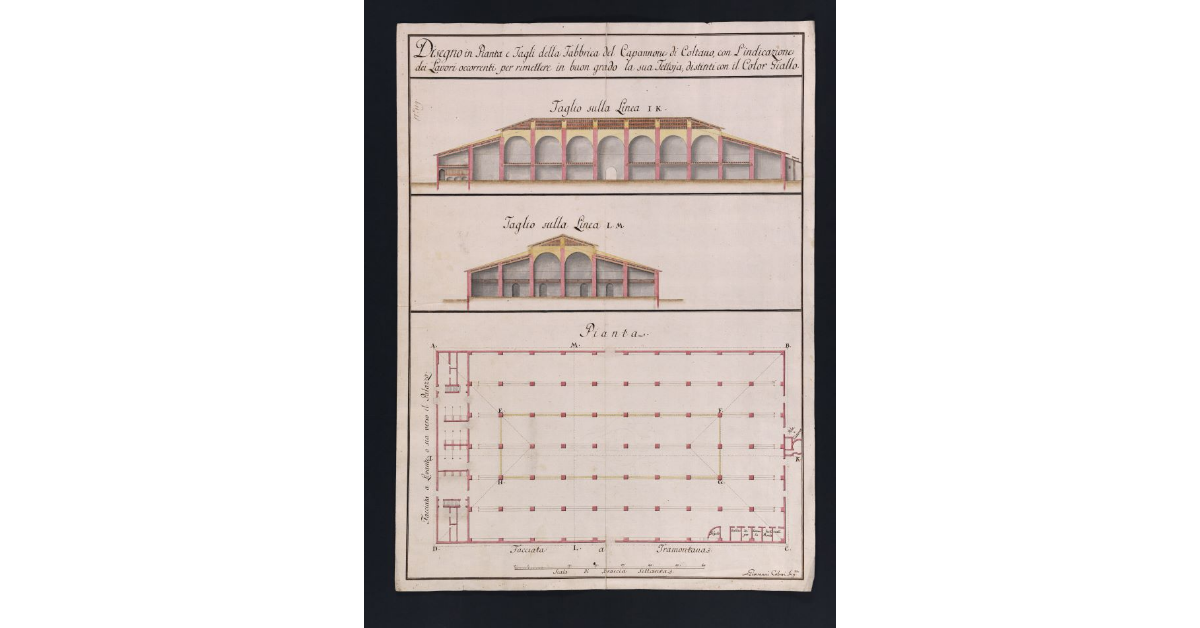 Disegno in Pianta e Tagli della Fabbrica del Capannone di Coltano, con L'indicazione
dei Lavori occorrenti per rimettere in buon grado la sua Tettoja, distinti con il Color Giallo.
Taglio sulla Linea I K.
Taglio sulla Linea L M.
Pianta.
A. M. B.
E. F.
Facciata a Levante, o sia verso il Palazzo
I
K
H. G.
D. Facciata L. a Tramontana C.
Scala di Braccia
Giovanni